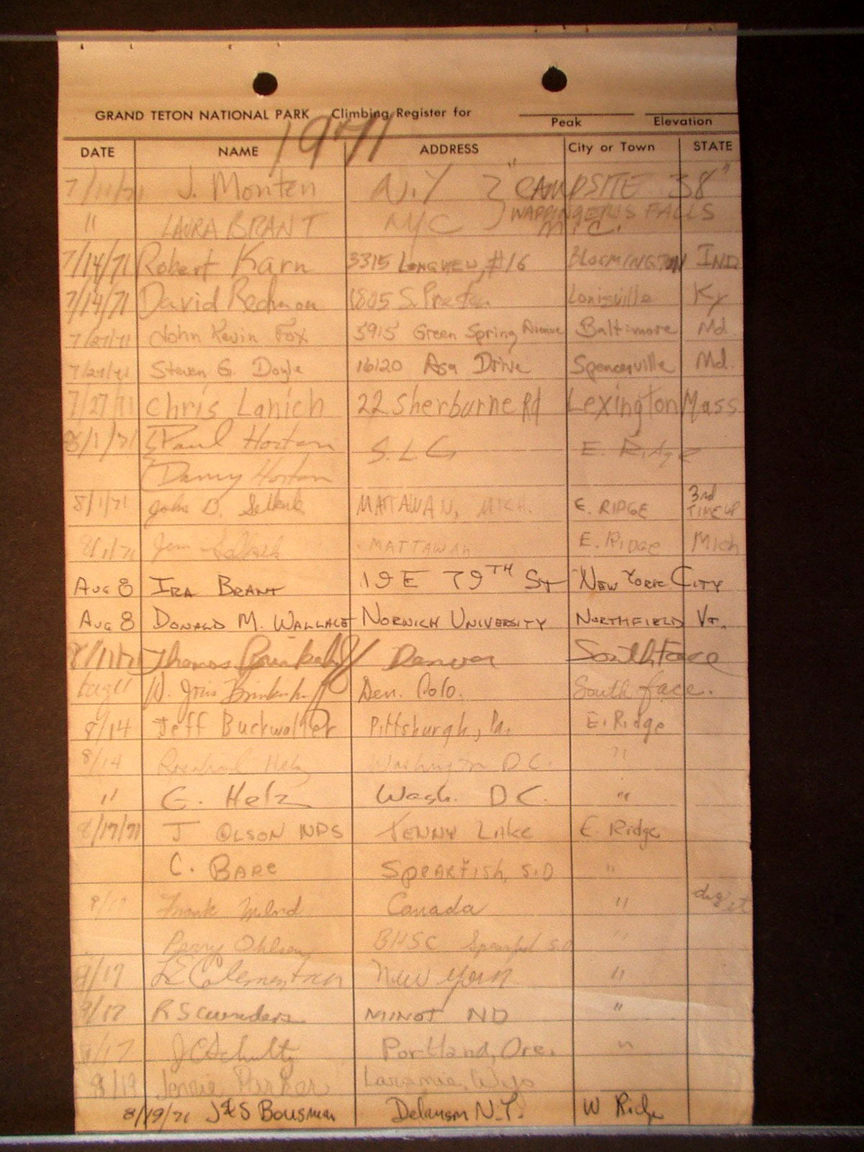 GRAND TETON NATIONAL PARK Climbing Register for
Peak Elevation
1971
DATE NAME ADDRESS City or Town STATE
7/11/71 J. Monten N.Y "CAMPSITE 38"
" LAURA BRANT NYC WAPPINGERUS FALLS
7/14/71 Robert Karn 3315 LONGVIEW #16 BLOOMINGTON IND
7/14/71 David Redmon 1805 S. Preston Louisville Ky
7/27/71 John Kevin Fox 5915 Green Spring Avenue Baltimore Md.
7/27/71 Steven G. Doyle 16120 Asa Drive Spencerville Md.
7/27/71 Chris Lanich 22 Sherburne Rd Lexington Mass
8/1/71 Paul Horton S.L.C E. Ridge
Danny Horton
8/1/71 John D. MATTAWAN, MICH. E. RIDGE 3rd TIME UP
8/1/71 MATTAWAN E. RIDGE Mich
AUG 8 IRA BRANT 19 E 79TH St NEW YORK CITY
AUG 8 DONALD M. WALLACE NORWICH UNIVERSITY NORTHFIELD VT.
8/11/71 Thomas Denver South Face
W. Den. Colo. South face.
8/14 Jeff Buckwalter Pittsburgh, Pa. E. Ridge
8/14 Helz Washington D.C. "
" G. Helz Wash. D.C. "
8/17/71 J OLSON NPS JENNY Lake E. Ridge
C. BARE SPEARFISH, S.D "
Frank Canada "
Perry Ohlson BHSC Spearfish S.D "
8/17 New York "
8/17 R Saunders MINOT ND "
8/17 JC Schultz Portland, Ore. "
8/19 Parker Laramie, Wyo
8/19/71 J&S BOUSMAN W Ridge